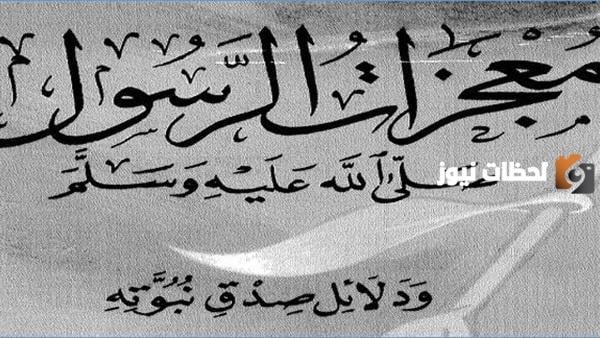 مُعْجِزَاتُ الرَّسُولِ
صَلَّى اللَّه عَلَيْهِ وَسَلَّمَ
لحظات نيوز
وَدَلَائِل صِدْقِ نُبُوَّتِهِ